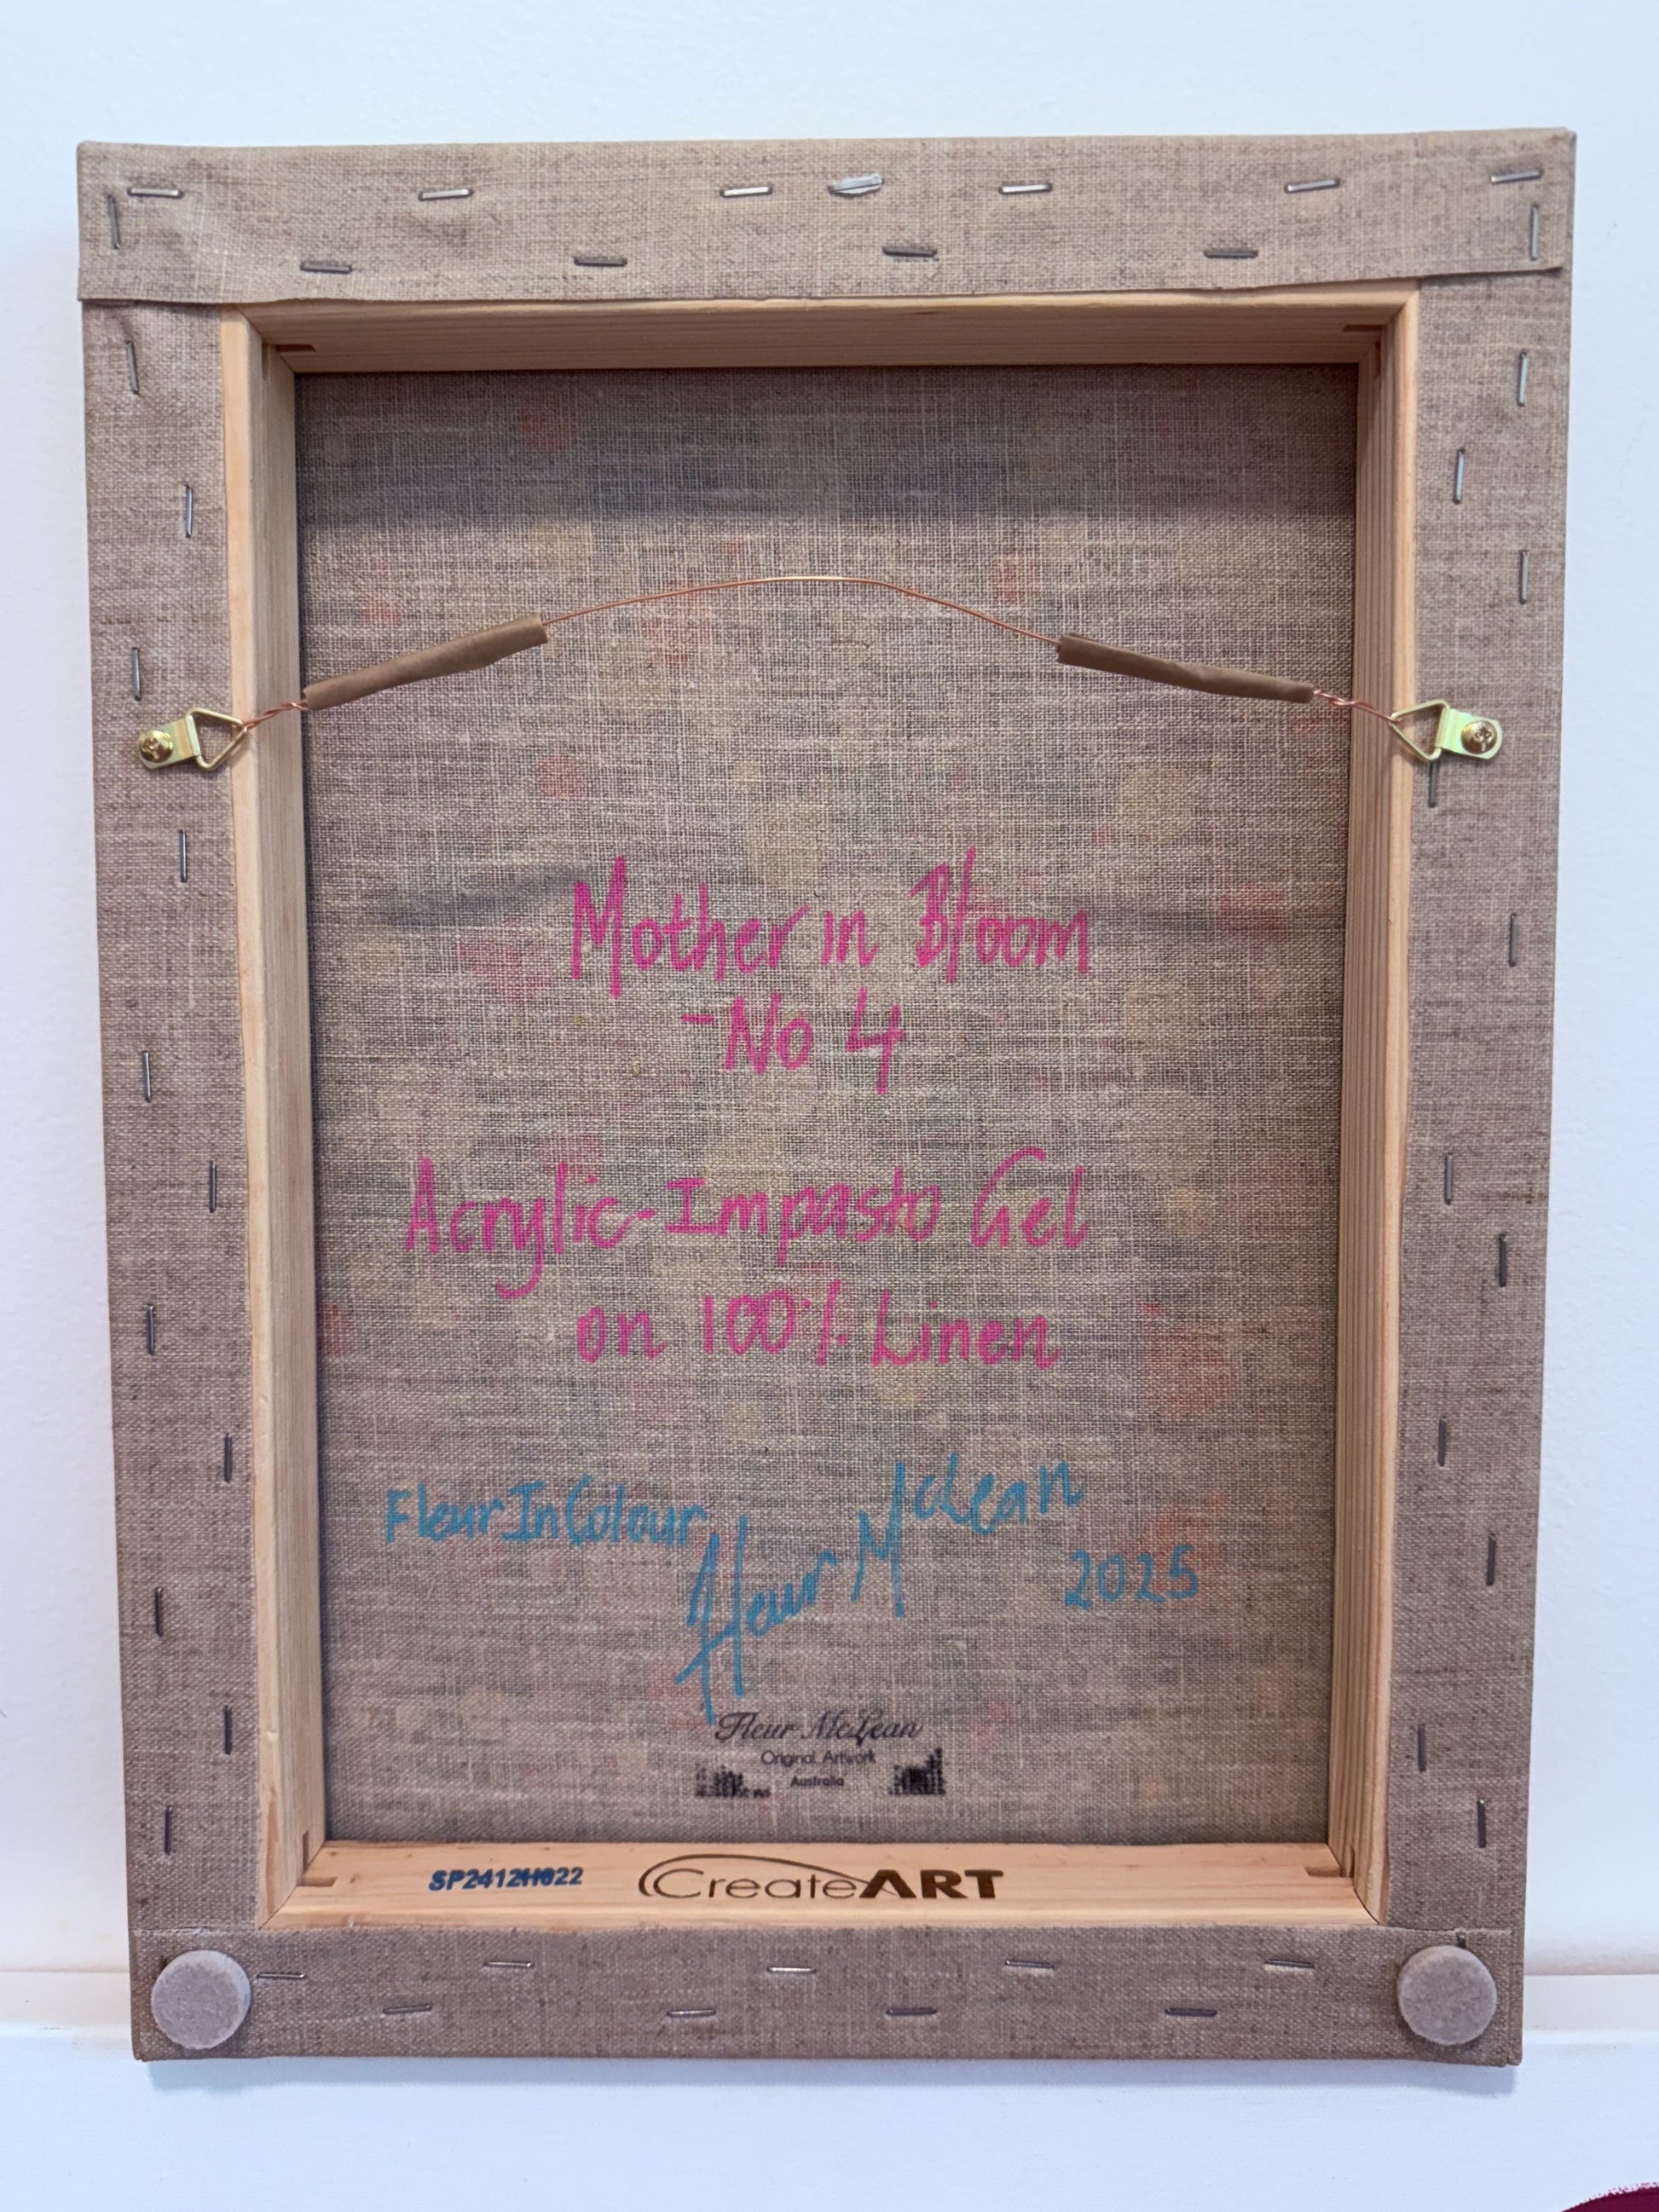 Mother in Bloom
- No 4
Acrylic-Impasto Gel
on 100% Linen
FleurInColour
Fleur McLean
2025
Fleur McLean
Original Artwork
Australia
SP2412H622
CreateART